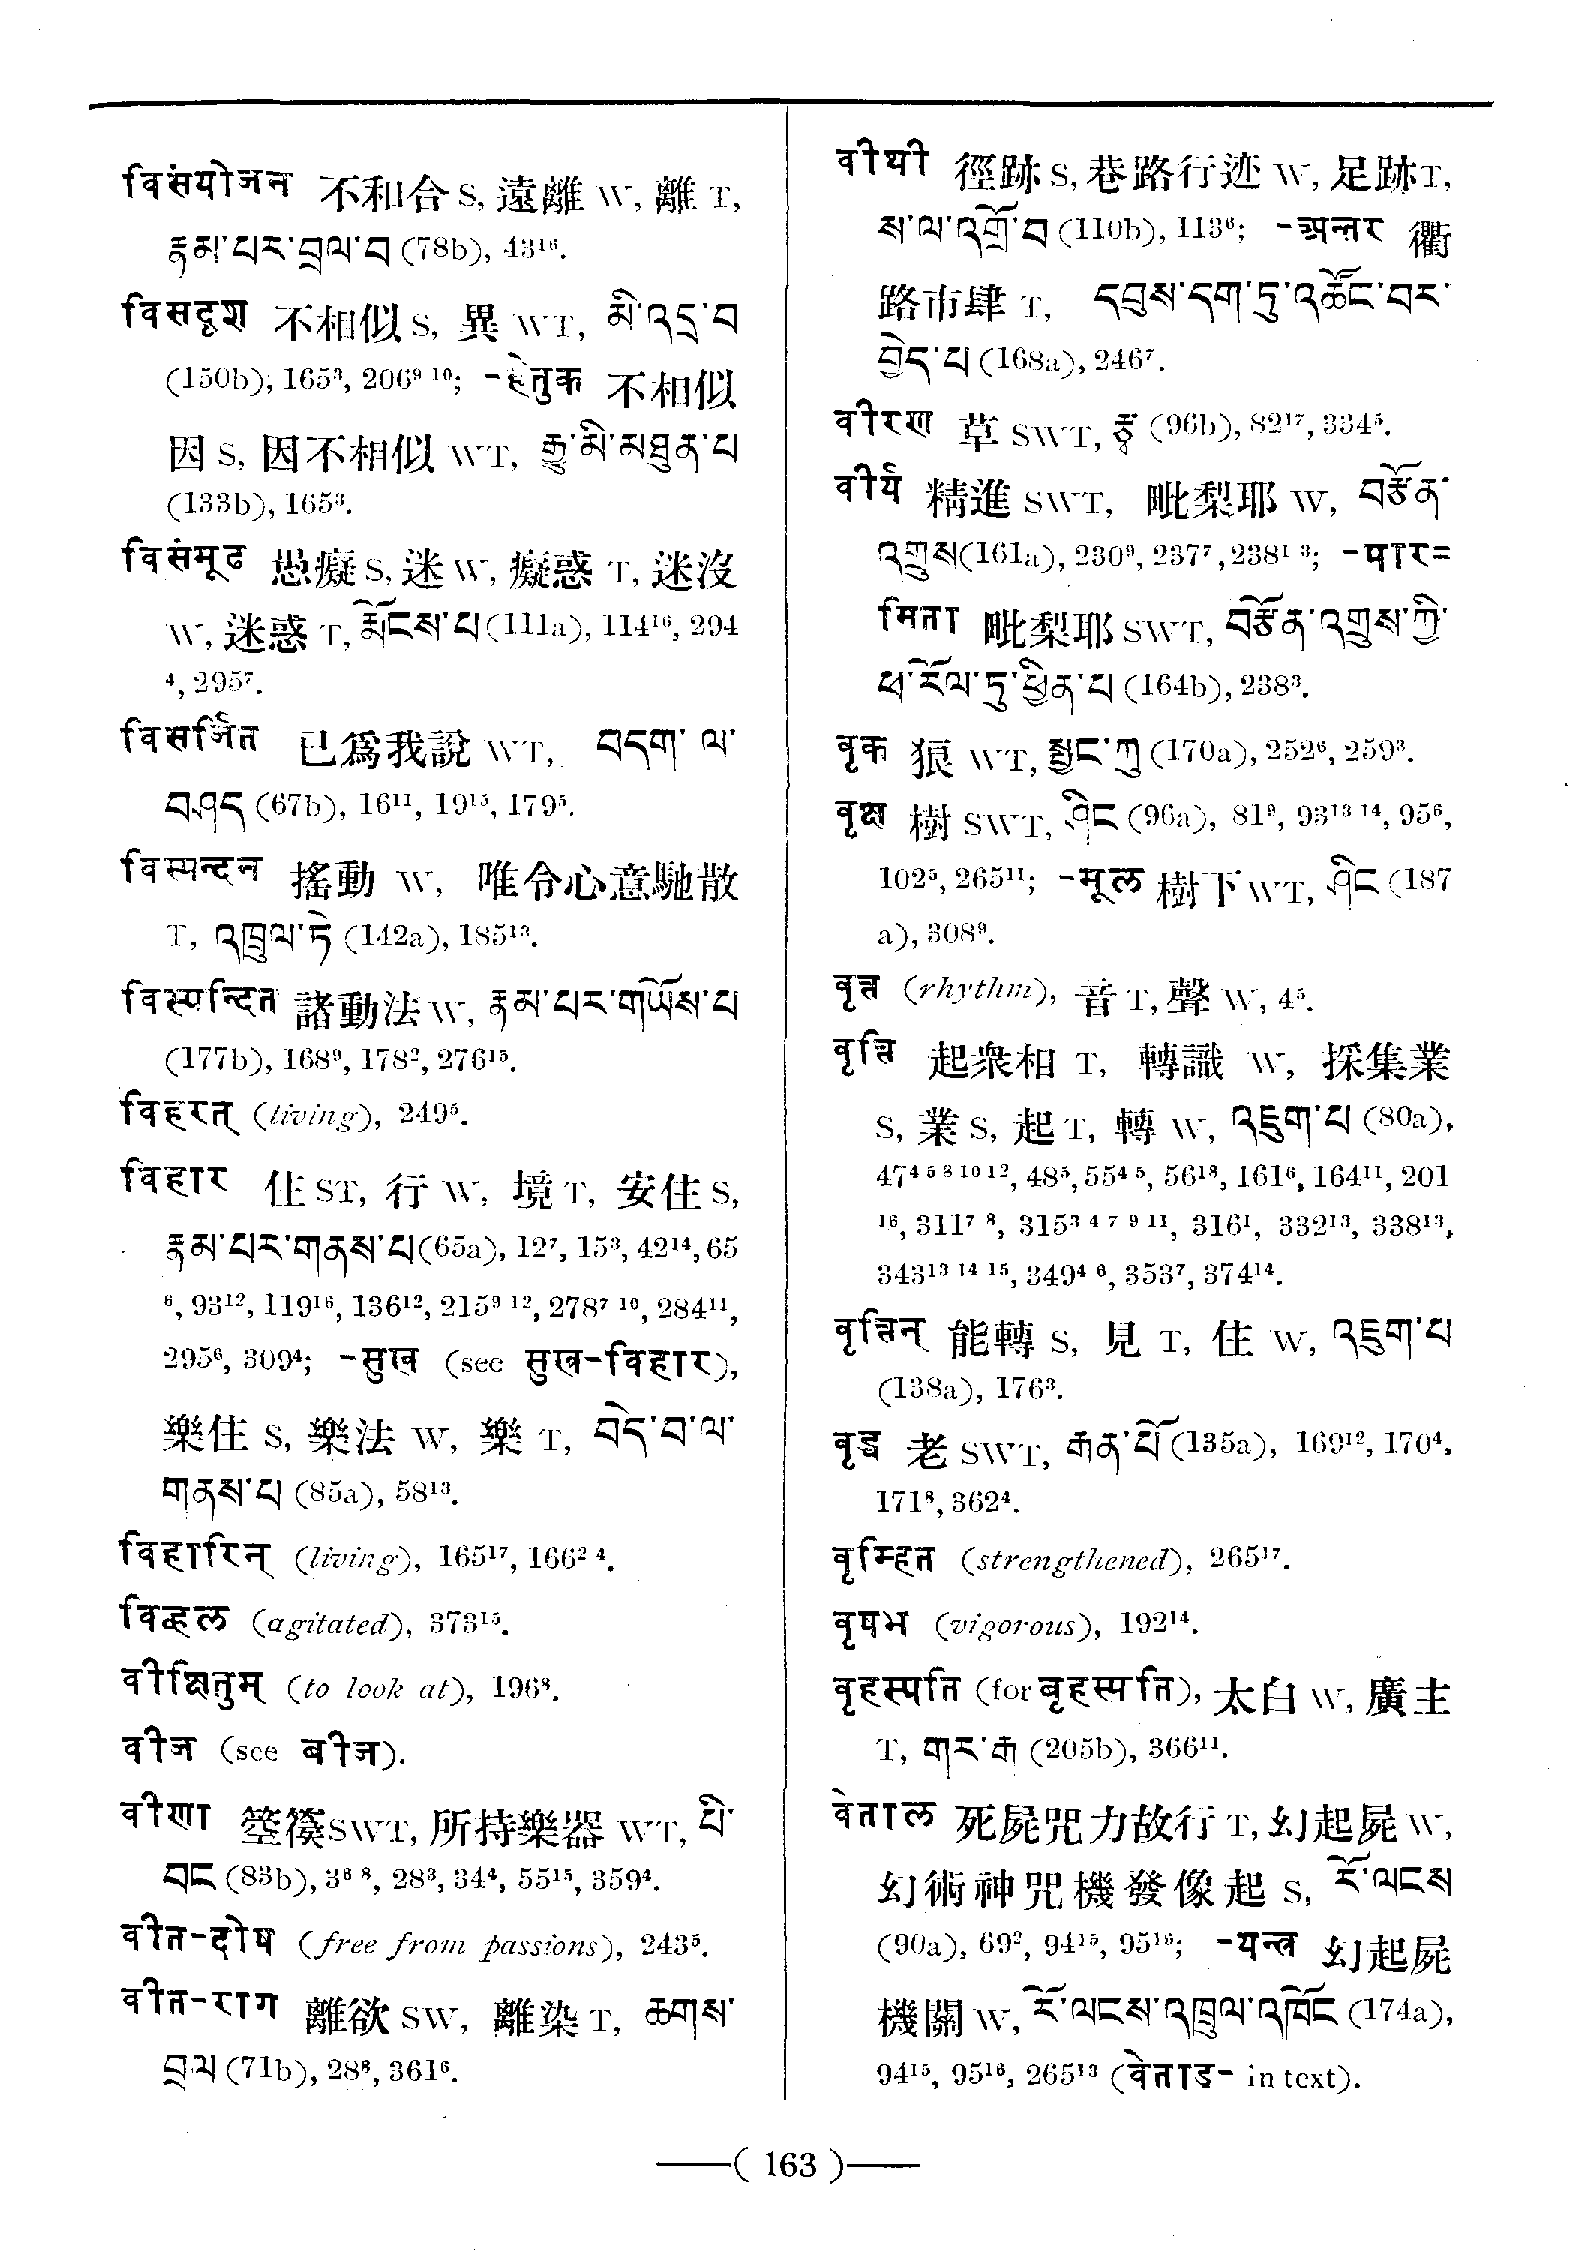 विसंयोजन 不和合 S, 遠離 W, 離 T,
རྣམ་པར་བྲལ་བ (78b), 43¹⁶.
विसदृश 不相似 S, 異 WT, མི་འདྲ་བ
(150b), 165³, 206⁹ ¹⁰; -हेतुक 不相似
因 S, 因不相似 WT, རྒྱུ་མི་མཐུན་པ
(133b), 165³.
विसंमूढ 愚癡 S, 迷 W, 癡惑 T, 迷沒
W, 迷惑 T, རྨོངས་པ (111a), 114¹⁶, 294
⁴, 295⁷.
विसर्जित 已爲我說 WT, བདག་ ལ་
བཤད (67b), 16¹¹, 19¹⁵, 179⁵.
विस्पन्दन 搖動 W, 唯令心意馳散
T, འཁྲུལ་ཏེ (142a), 185¹³.
विस्पन्दित 諸動法 W, རྣམ་པར་གཡོས་པ
(177b), 168⁹, 178², 276¹⁵.
विहरत् (living), 249⁵.
विहार 住 ST, 行 W, 境 T, 安住 S,
རྣམ་པར་གནས་པ (65a), 12⁷, 15³, 42¹⁴, 65
⁶, 93¹², 119¹⁶, 136¹², 215⁹ ¹², 278⁷ ¹⁰, 284¹¹,
295⁶, 309⁴; -सुख (see सुख-विहार),
樂住 S, 樂法 W, 樂 T, བདེ་བ་ལ་
གནས་པ (85a), 58¹³.
विहारिन् (living), 165¹⁷, 166² ⁴.
विह्वल (agitated), 373¹⁵.
वीक्षितुम् (to look at), 196⁸.
वीज (see बीज).
वीणा 箜篌 SWT, 所持樂器 WT, པི་
བང (83b), 3⁶ ⁸, 28³, 34⁴, 55¹⁵, 359⁴.
वीत-दोष (free from passions), 243⁵.
वीत-राग 離欲 SW, 離染 T, ཆགས་
བྲལ (71b), 28⁸, 361⁶.
वीथी 徑跡 S, 巷路行迹 W, 足跡 T,
ས་ལ་འགྲོ་བ (110b), 113⁶; -अन्तर 衢
路市肆 T, དབུས་དག་ཏུ་འཚོང་བར་
བྱེད་པ (168a), 246⁷.
वीरण 草 SWT, རྩྭ (96b), 82¹⁷, 334⁵.
वीर्य 精進 SWT, 毗梨耶 W, བརྩོན་
འགྲུས (161a), 230⁹, 237⁷, 238¹ ³; -पार=
मिता 毗梨耶 SWT, བརྩོན་འགྲུས་ཀྱི་
ཕ་རོལ་ཏུ་ཕྱིན་པ (164b), 238³.
वृक 狼 WT, སྤྱང་ཀུ (170a), 252⁶, 259³.
वृक्ष 樹 SWT, ཤིང (96a), 81⁹, 93¹³ ¹⁴, 95⁶,
102⁵, 265¹¹; -मूल 樹下 WT, ཤིང (187
a), 308⁹.
वृत्त (rhythm), 音 T, 聲 W, 4⁵.
वृत्ति 起衆相 T, 轉識 W, 採集業
S, 業 S, 起 T, 轉 W, འཇུག་པ (80a),
47⁴ ⁵ ⁸ ¹⁰ ¹², 48⁵, 55⁴ ⁵, 56¹⁸, 161⁶, 164¹¹, 201
¹⁶, 311⁷ ⁸, 315³ ⁴ ⁷ ⁹ ¹¹, 316¹, 332¹³, 338¹³,
343¹³ ¹⁴ ¹⁵, 349⁴ ⁶, 353⁷, 374¹⁴.
वृत्तिन् 能轉 S, 見 T, 住 W, འཇུག་པ
(138a), 176³.
वृद्ध 老 SWT, རྒན་པོ (135a), 169¹², 170⁴,
171⁸, 362⁴.
वृम्हित (strengthened), 265¹⁷.
वृषभ (vigorous), 192¹⁴.
वृहस्पति (for बृहस्पति), 太白 W, 廣主
T, གར་རྒ (205b), 366¹¹.
वेताल 死屍咒力故行 T, 幻起屍 W,
幻術神咒機發像起 S, རོ་ལངས
(90a), 69², 94¹⁵, 95¹⁶; -यन्त्र 幻起屍
機關 W, རོ་ལངས་འཁྲུལ་འཁོང (174a),
94¹⁵, 95¹⁶, 265¹³ (वेताड- in text).
—( 163 )—